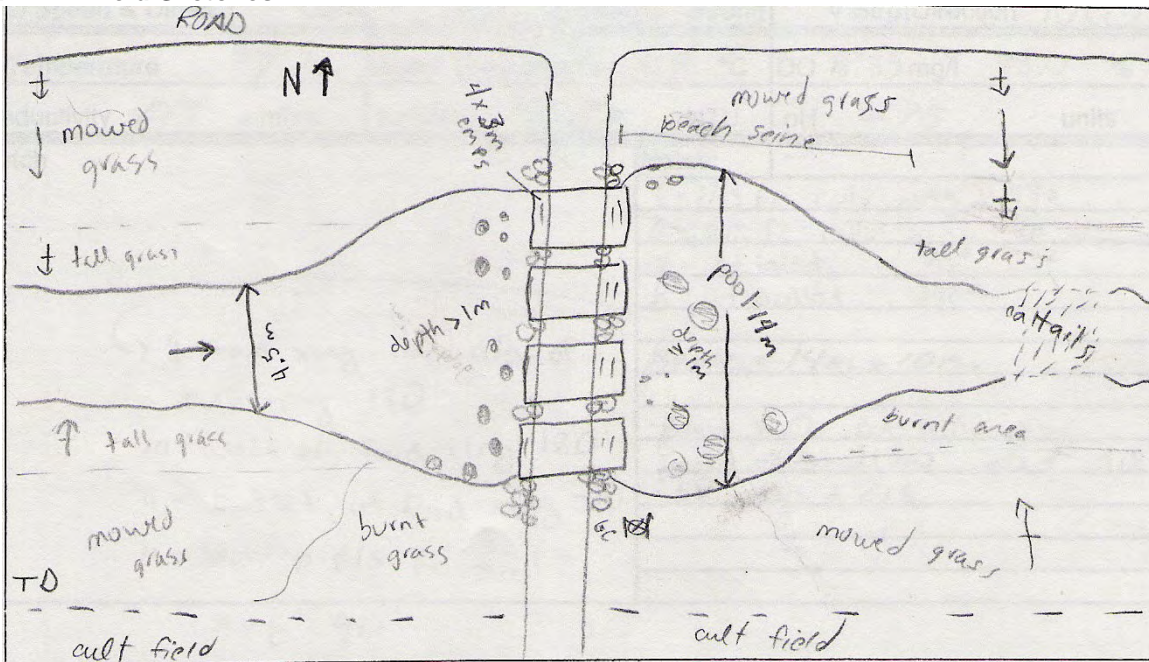 ROAD
N
mowed
grass
4 x 3m
cmps
mowed grass
beach seine
tall grass
tall grass
4.5m
depth > 1m
pool-14m
depth
≤ 1m
cattails
tall grass
burnt area
mowed
grass
burnt
grass
mowed grass
TD
cult field
cult field